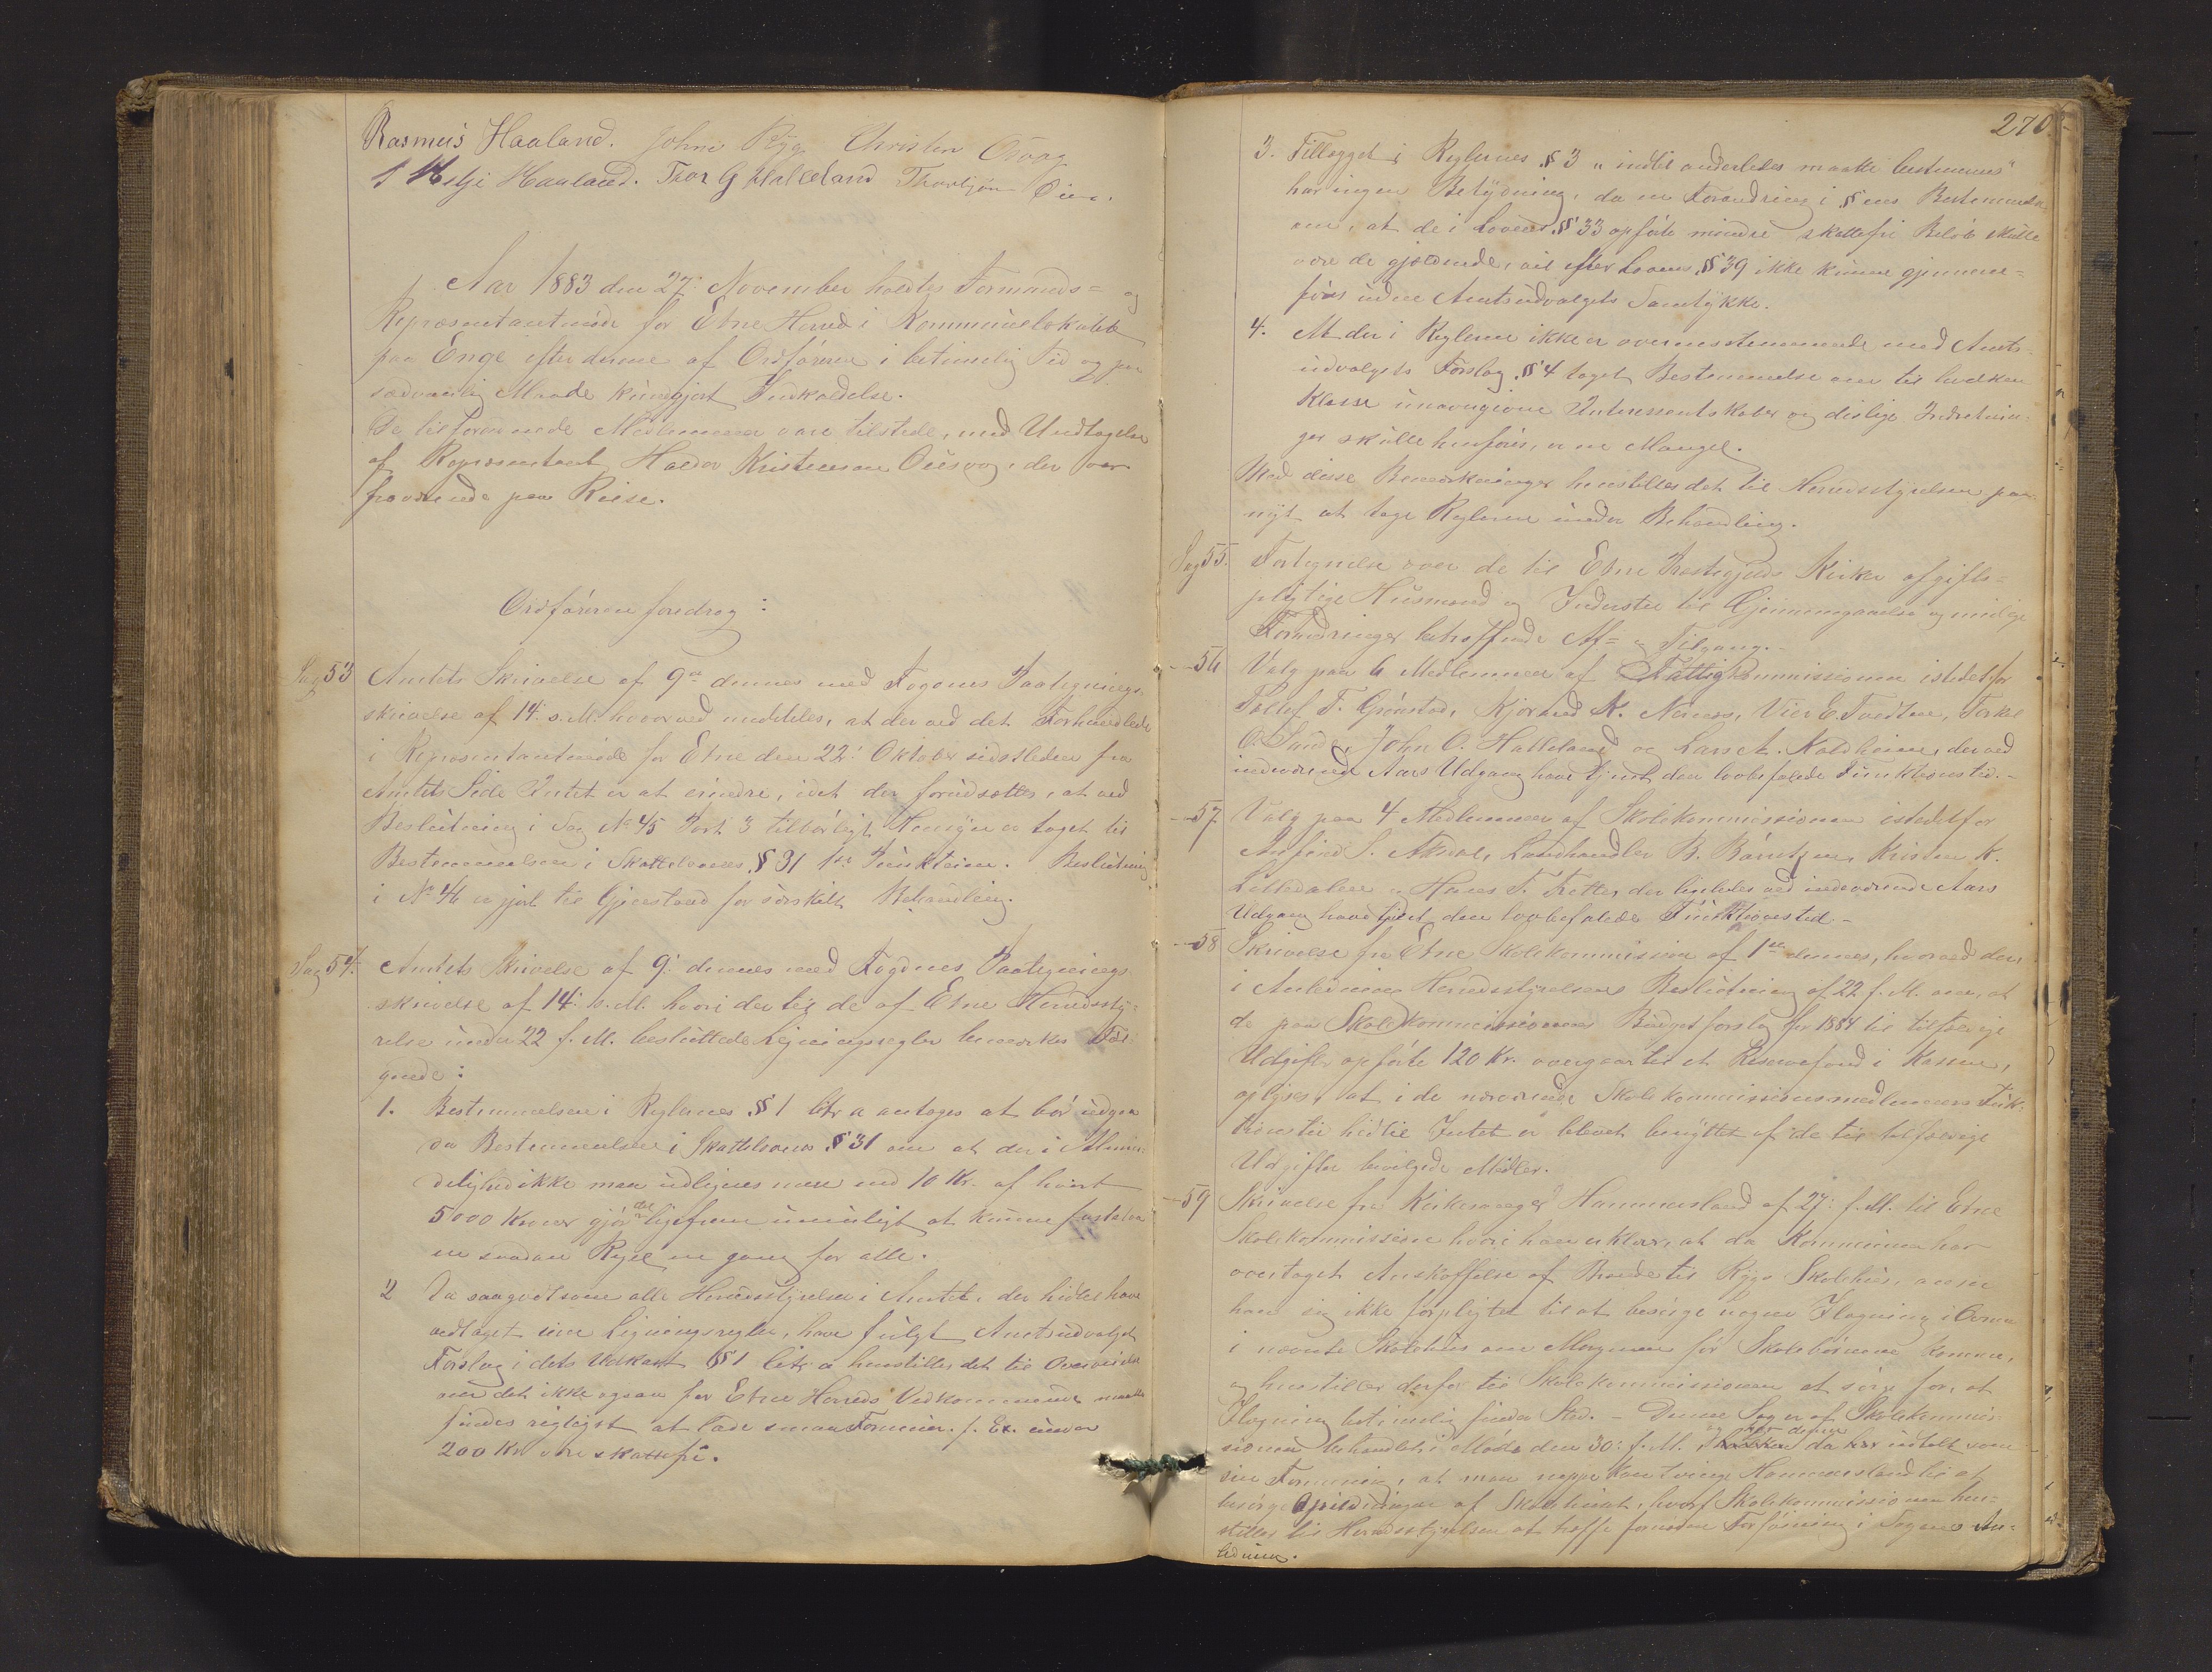 Rasmus Haaland. Johne Rygg Christen Osvag
T Helje Haaland. Thor G Halleland Thorbjørn Øien.
Aar 1883 den 27: November holdtes Formands= og
Repræsentantmøde for Etne Herred i Kommunelokalet
paa Enge efter denne af Ordføreren i betimelig Tid og paa
sædvanlig Maade kundgjort Indkaldelse.
De tilforordnede Medlemmer vare tilstede, med Undtagelse
af Repræsentant Haldor Kristensen Ousvog, der var
fraværende paa Reise.
Ordføreren foredrog:
Sag 53 Amtets Skrivelse af 9de dennes med Fogdens Paategnings
skrivelse af 14: s. M. hvorved meddeles, at der ved det Forhandlede
i Repræsentantmøde for Etne den 22: Oktober sidstleden fra
Amtets Side Intet er at erindre, idet der forudsættes, at ved
Beslutning i Sag No 45 Post 3 tilbørligt Hensyn er taget til
Bestemmelsen i Skatteloven § 31 1ste Punktum. Beslutning
i No 46 er gjort til Gjenstand for særskilt Behandling.
Sag 54. Amtets Skrivelse af 9: dennes med Fogdens Paategnings
skrivelse af 14: s. M. hvori der til de af Etne Herredssty=
relse under 22 f. M. besluttede Ligningsregler bemærkes Føl
gende:
1. Bestemmelsen i Reglernes § 1 litr a antages at bør udgaa
da Bestemmelsen i Skatteloven § 31 om at der i Almin
delighed ikke maa udlignes mere end 10 Kr. af hvert
5000 Kroner gjør det ligefrem umuligt at kunne fastslaa
en saadan Regel en gang for alle.
2 Da saagodtsom alle Herredsstyrelser i Amtet, der hidtil have
vedtaget sine Ligningsregler, have fulgt Amtsudvalgets
Forslag i dets Udkast § 1 litr a henstilles det til Overveielse
om det ikke ogsaa for Etne Herreds Vedkommende maatte
findes rigtigst at lade smaa Formuer f. Ex. under
200 Kr være skattefri.
270.
3. Tillægget i Reglernes § 3 "indtil anderledes maatte bestemmes"
har ingen Betydning, da en Forandring i § ens Bestemmelse
om, at de i Lovens § 33 opførte mindre skattefri Beløb skulle
være de gjældende, vil efter Lovens § 39 ikke kunne gjennem=
føres uden Amtsudvalgets Samtykke.
4. At der i Reglerne ikke er overensstemmende med Amts=
udvalgets Forslag § 4 taget Bestemmelse om til hvilken
Klasse unavngivne Interessentskaber og deslige Indretnin=
ger skulle henføres, er en Mangel.
Med disse Bemærkninger henstilles det til Herredsstyrelsen paa
nyt at tage Reglerne under Behandling.
Sag 55. Fortegnelse over de til Etne Præstegjelds Kirker afgifts=
pligtige Husmænd og Inderster til Gjennemgaaelse og mulige
Forandringer betræffende Af= og Tilgang.
56 Valg paa 6 Medlemmer af Fattigkommissionen istedetfor
Tollef T. Grønstad, Kjørand K. Nernes, Vier E. Tvedten, Torkel
O. Sande, John O. Halleland og Lars A. Kaldheim, der ved
indeværende Aars Udgang have tjent den lovbefalede Funktionstid.
57 Valg paa 4 Medlemmer af Skolekommissionen istedetfor
Arfind S. Aksdal, Landhandler B. Børretzen, Kristen K.
Litledalen og Hans T. Trette, der ligeledes ved indeværende Aars
Udgang have tjent den lovbefalede Funktionstid
58 Skrivelse fra Etne Skolekommission af 1ste dennes, hvorved den,
i Anledning Herredsstyrelsens Beslutning af 22 f. M. om, at
de paa Skolekommissionens Budgetforslag for 1884 til tilfældige
Udgifter opførte 120 Kr. overgaar til et Reservefond i Kassen,
oplyses, at i de nærværende Skolekommissionsmedlemmers Funk=
tionstid hidtil Intet er blevet benyttet af de til tilfældige
Udgifter bevilgede Midler.
59 Skrivelse fra Kirkesanger Hammersland af 27: f. M. til Etne
Skolekommission hvori han erklærer, at da Kommunen har
overtaget Anskaffelse af Brænde til Rygg Skolehus, anser
han sig ikke forpligtet til at besørge nogen Ilægning i Ovnen
i nævnte Skolehus om Morgenen før Skolebørnene komme,
og henstiller derfor til Skolekommissionen at sørge for, at
Ilægning betimelig finder Sted. - Denne Sag er af Skolekommis=
sionen behandlet i Møde den 30: f. M. og har denne da udtalt som
sin Formening, at man neppe kan tvinge Hammersland til at
besørge Opildningen af Skolehuset, hvorf Skolekommissionen hen=
stiller til Herredsstyrelsen at træffe fornøden Forføining i Sagens An=
ledning.